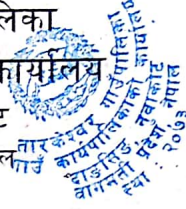 लिका
कार्यालय
ट
ल
तारकेश्वर गाउँपालिका
गाउँ कार्यपालिकाको कार्यालय
नुवाकोट
बागमती प्रदेश नेपाल
स्था : २०७३